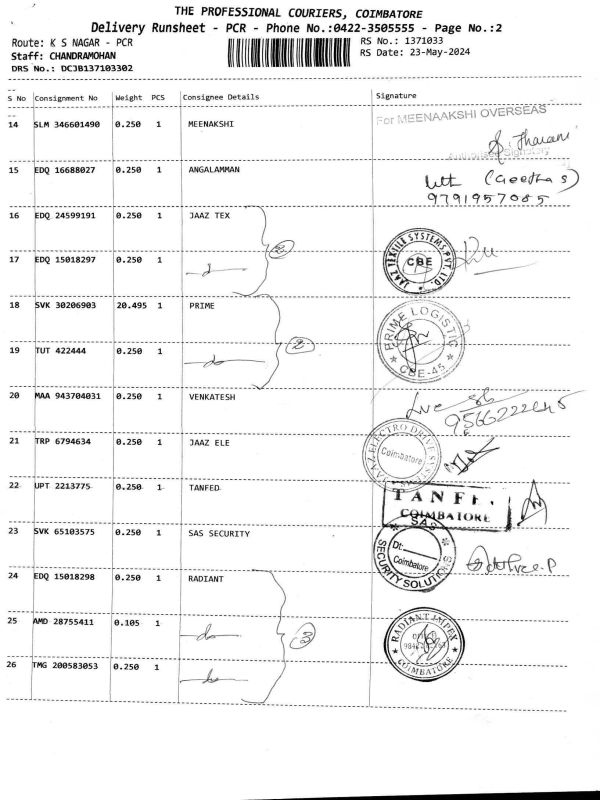 THE PROFESSIONAL COURIERS, COIMBATORE
Delivery Runsheet - PCR - Phone No.:0422-3505555 - Page No.:2
Route: K S NAGAR - PCR
Staff: CHANDRAMOHAN
DRS No.: DCJB137103302
RS No.: 1371033
RS Date: 23-May-2024
S No Consignment No Weight PCS Consignee Details Signature
14 SLM 346601490 0.250 1 MEENAKSHI
For MEENAAKSHI OVERSEAS
Tharani
Authorised Signatory
15 EDQ 16688027 0.250 1 ANGALAMMAN
(Geetha S)
9791957085
16 EDQ 24599191 0.250 1 JAAZ TEX
JAAZ TEXTILE SYSTEMS PVT. LTD.
CBE
17 EDQ 15018297 0.250 1 -do-
18 SVK 30206903 20.495 1 PRIME
PRIME LOGISTIC
CBE-45
19 TUT 422444 0.250 1 -do-
20 MAA 943704031 0.250 1 VENKATESH
21 TRP 6794634 0.250 1 JAAZ ELE
JAAZ ELECTRO DRIVE
Coimbatore
22 UPT 2213775 0.250 1 TANFED
COIMBATORE
23 SVK 65103575 0.250 1 SAS SECURITY
SAS
Dt:
Coimbatore
SECURITY SOLUTIONS
24 EDQ 15018298 0.250 1 RADIANT
25 AMD 28755411 0.105 1 -do-
RADIANT IMPEX
COIMBATORE
26 TMG 200583053 0.250 1 -do-